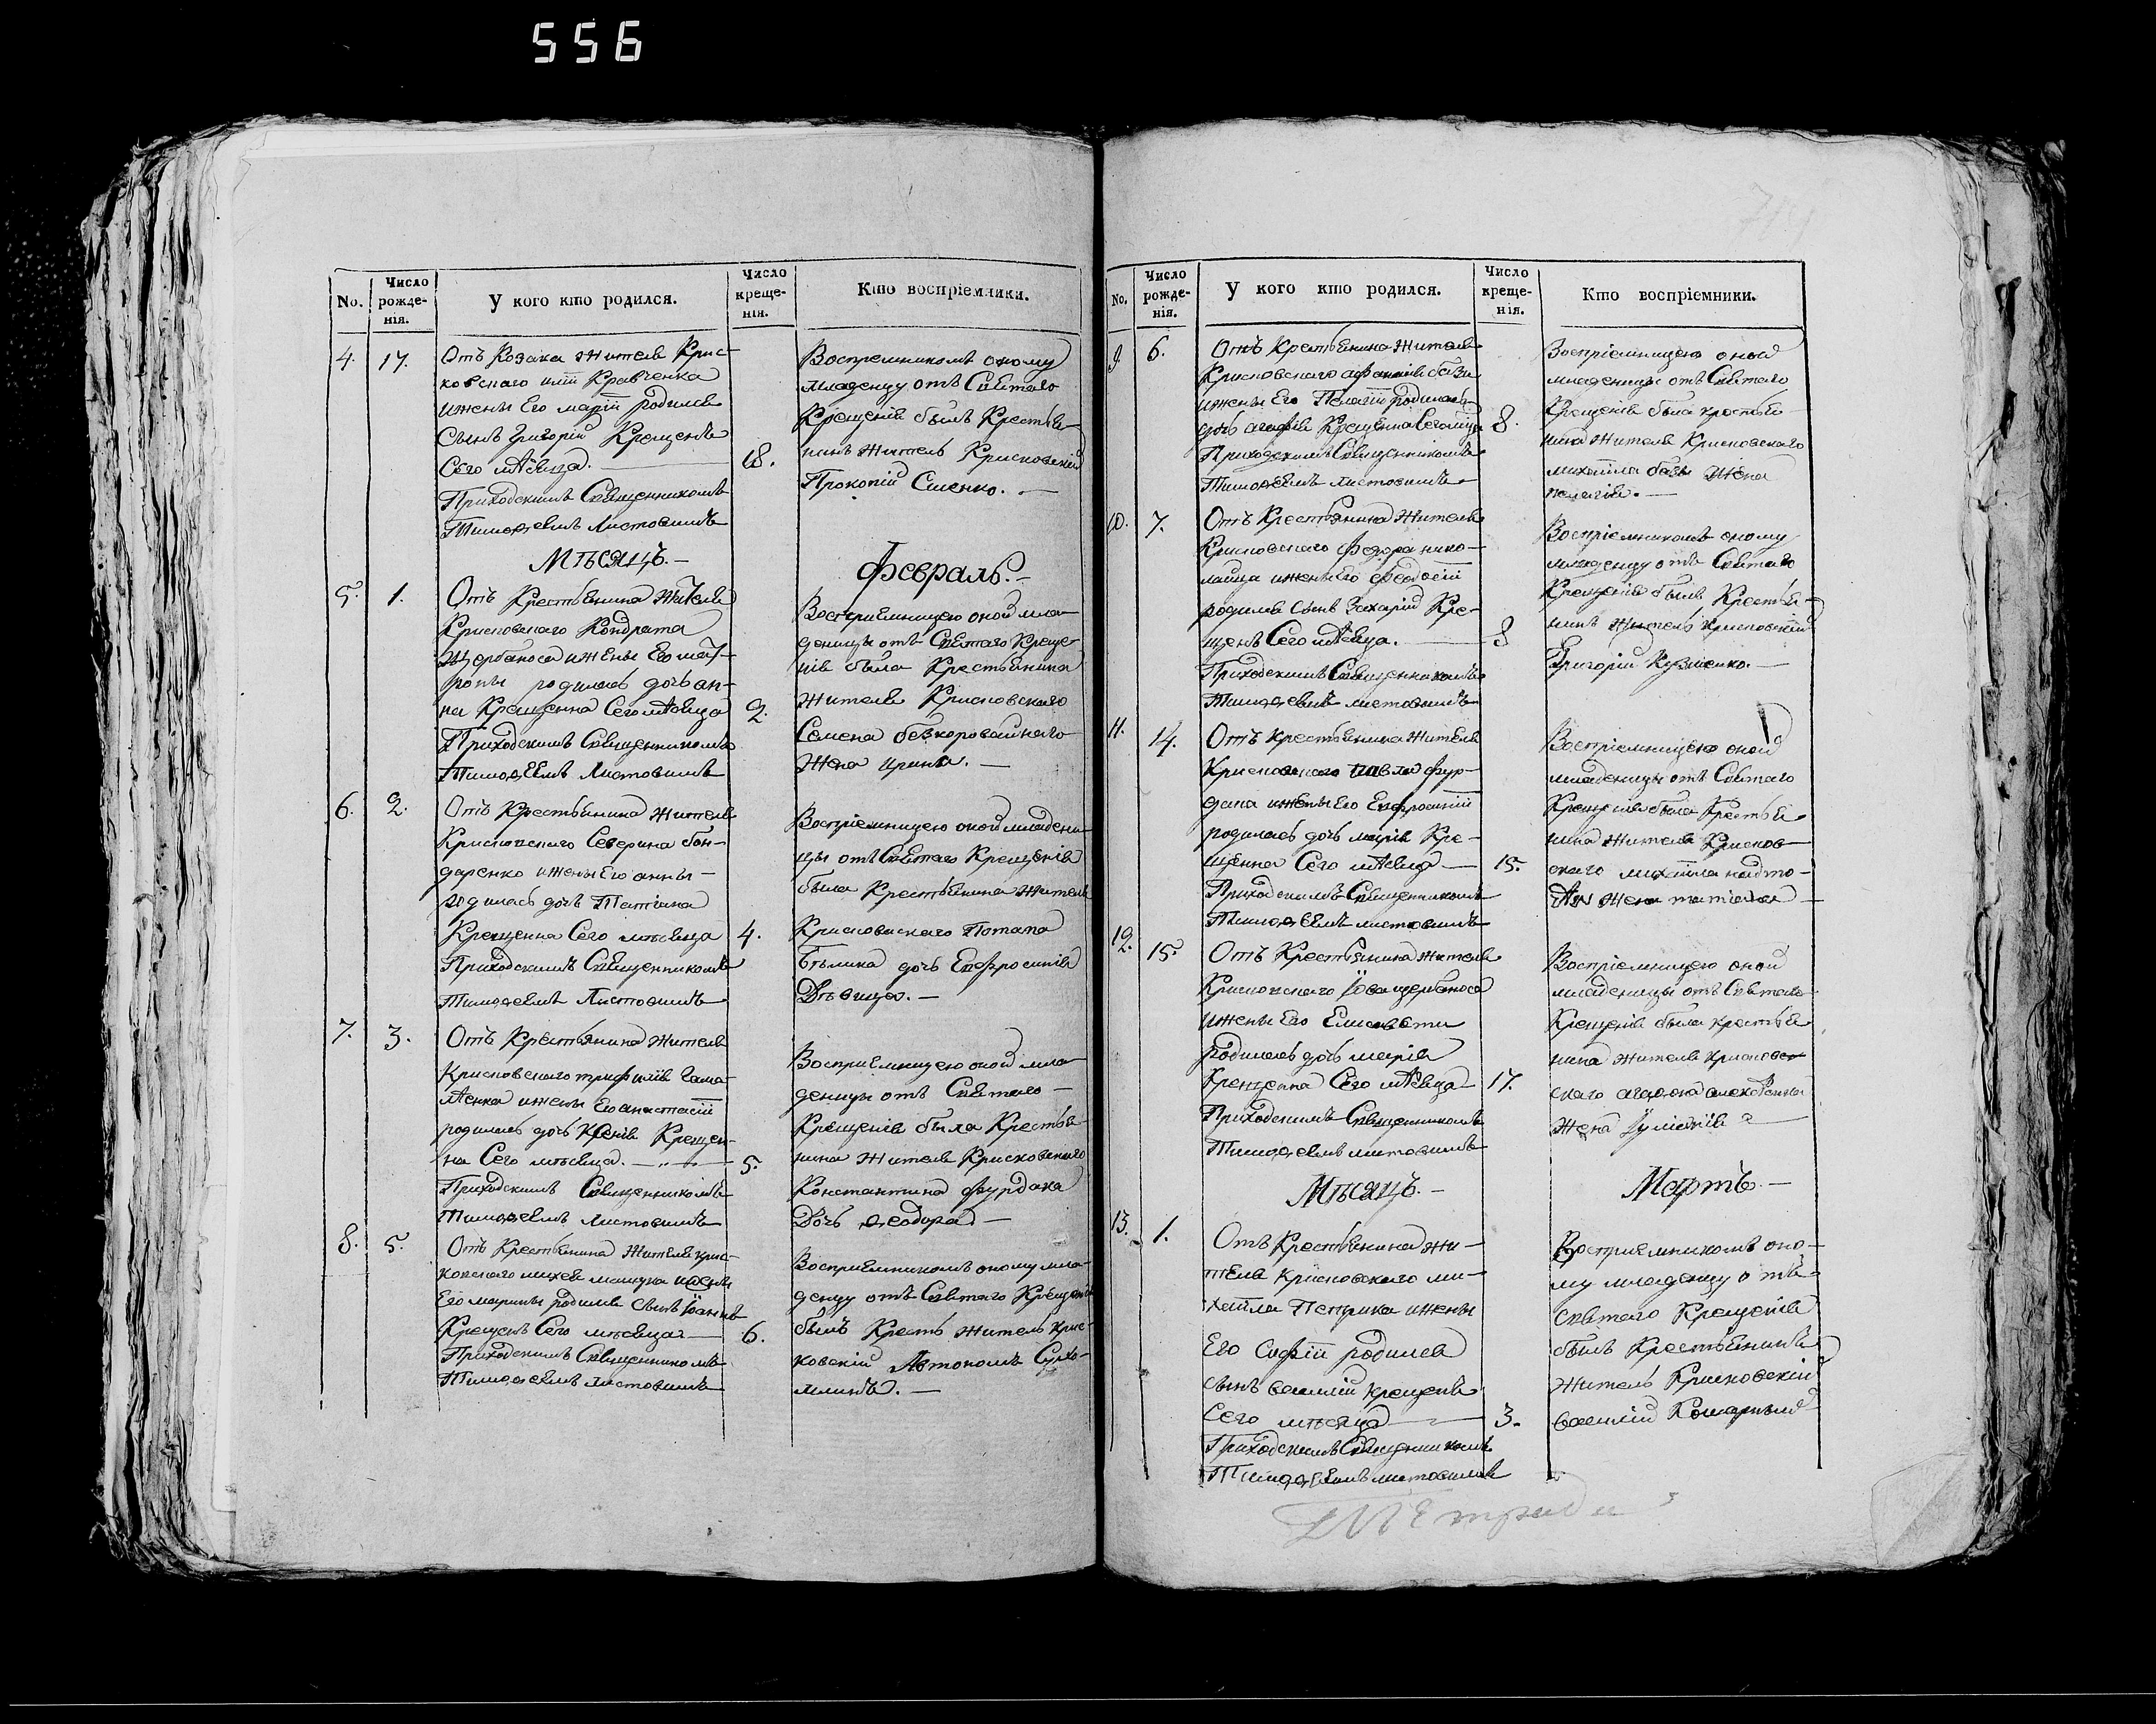 556
No.
Число рожде-нія.
У кого кто родился.
Число креще-нія.
Кто воспріемники.
4. 17.
Отъ Козака жителя Крис-
ковского
Кравченка
и жены Его маріи родился
Сынъ Григорій Крещенъ
Сего мѣсяца. 18.
Приходскимъ Священникомъ
Тимофеемъ Листовимъ
Воспремникомъ оному
младенцу отъ Святаго
Крещенія былъ Крестья-
нинъ Житель Крисковскій
Прокопій
Мѣсяцъ.
Февраль.
5. 1.
Отъ Крестьянина Жителя
Крисковского Кондрата
Щербаноса и жены Его мат-
роны родилась дочь ан-
на Крещенна Сего мѣсяца 2.
Приходскимъ Священникомъ
Тимофеемъ Листовимъ
Воспріемницею оной мла-
деницы отъ Святаго Креще-
нія была Крестьянина
Жителя Крисковского
Семена безкоровайнаго
Жена ирина.
6. 2.
Отъ Крестьянина Жителя
Крисковского Северина бон-
даренко и жены Его анны
родилась дочь Татіана
Крещенна Сего мѣсяца 4.
Приходскимъ Священникомъ
Тимофеемъ Листовимъ
Воспріемницею оной младени-
цы отъ Святаго Крещенія
была Крестьянина Жителя
Крисковского Потапа
Бѣлика дочь Евфросинія
Дѣвица.
7. 3.
Отъ Крестьянина Жителя
Крисковского трифилія
и жены Его анастасіи
родилась дочь Ксенія Крещен-
на Сего мѣсяца. 5.
Приходскимъ Священникомъ
Тимофеемъ Листовимъ
Воспріемницею оной мла-
деницы отъ Святаго
Крещенія была Крестья-
нина Жителя Крисковского
Константина Фурдака
Дочь Ѳеодора
8. 5.
Отъ Крестьянина Жителя крис-
ковского михея
и жены
Его марины родился сынъ Іоаннъ
Крещенъ Сего мѣсяца 6.
Приходскимъ Священникомъ
Тимофеемъ Листовимъ
Воспріемникомъ оному мла-
денцу отъ Святаго Крещенія
былъ Кресть Житель крис-
ковскій Автономъ Сухо-
млинъ.
No.
Число рожде-нія.
У кого кто родился.
Число креще-нія.
Кто воспріемники.
9 6.
Отъ Крестьянина Жителя
Крисковского афанасія базы
и жены Его Пелагіи родилась
дочь агафія Крещенна Сего мѣсяца 8.
Приходскимъ Священникомъ
Тимофеемъ Листовимъ
Воспріемницею оной
младеницы отъ Святаго
Крещенія была крестья-
нина Жителя Крисковского
михаила базы Жена
пелагія.
10. 7.
Отъ Крестьянина Жителя
Крисковского Федора нико-
лайца и жены Его Феодосіи
родился Сынъ Захарій Кре-
щенъ Сего мѣсяца. 8
Приходскимъ Священникомъ
Тимофеемъ Листовимъ
Воспріемникомъ оному
младенцу отъ Святаго
Крещенія былъ Крестья-
нинъ Житель Крисковскій
Григорій Кузменко.
11. 14.
Отъ Крестьянина Жителя
Крисковского павла Фур-
дака и жены Его Евфросиніи
родилась дочь марія Кре-
щенна Сего мѣсяца 15.
Приходскимъ Священникомъ
Тимофеемъ Листовимъ
Воспріемницею оной
младеницы отъ Святаго
Крещенія была Крестья-
нина Жителя Крисков-
ского михаила
Жена татіана
12. 15.
Отъ Крестьянина Жителя
Крисковского Іова щербаноса
и жены Его Елисавети
родилась дочь марія
Крещенна Сего мѣсяца 17.
Приходскимъ Священникомъ
Тимофеемъ Листовимъ
Воспріемницею оной
младеницы отъ Святаго
Крещенія была крестья-
нина Жителя Крисков-
ского агафона
Жена Іуліанія
Мѣсяцъ.
Мартъ.
13. 1.
Отъ Крестьянина Жи-
теля Крисковского ми-
хаила Петрика и жены
Его Софіи родился
сынъ василій крещенъ
Сего мѣсяца 3.
Приходскимъ Священникомъ
Тимофеемъ Листовимъ
Воспріемникомъ оно-
му младенцу отъ
Святаго Крещенія
былъ Крестьянинъ
Житель Крисковскій
василій